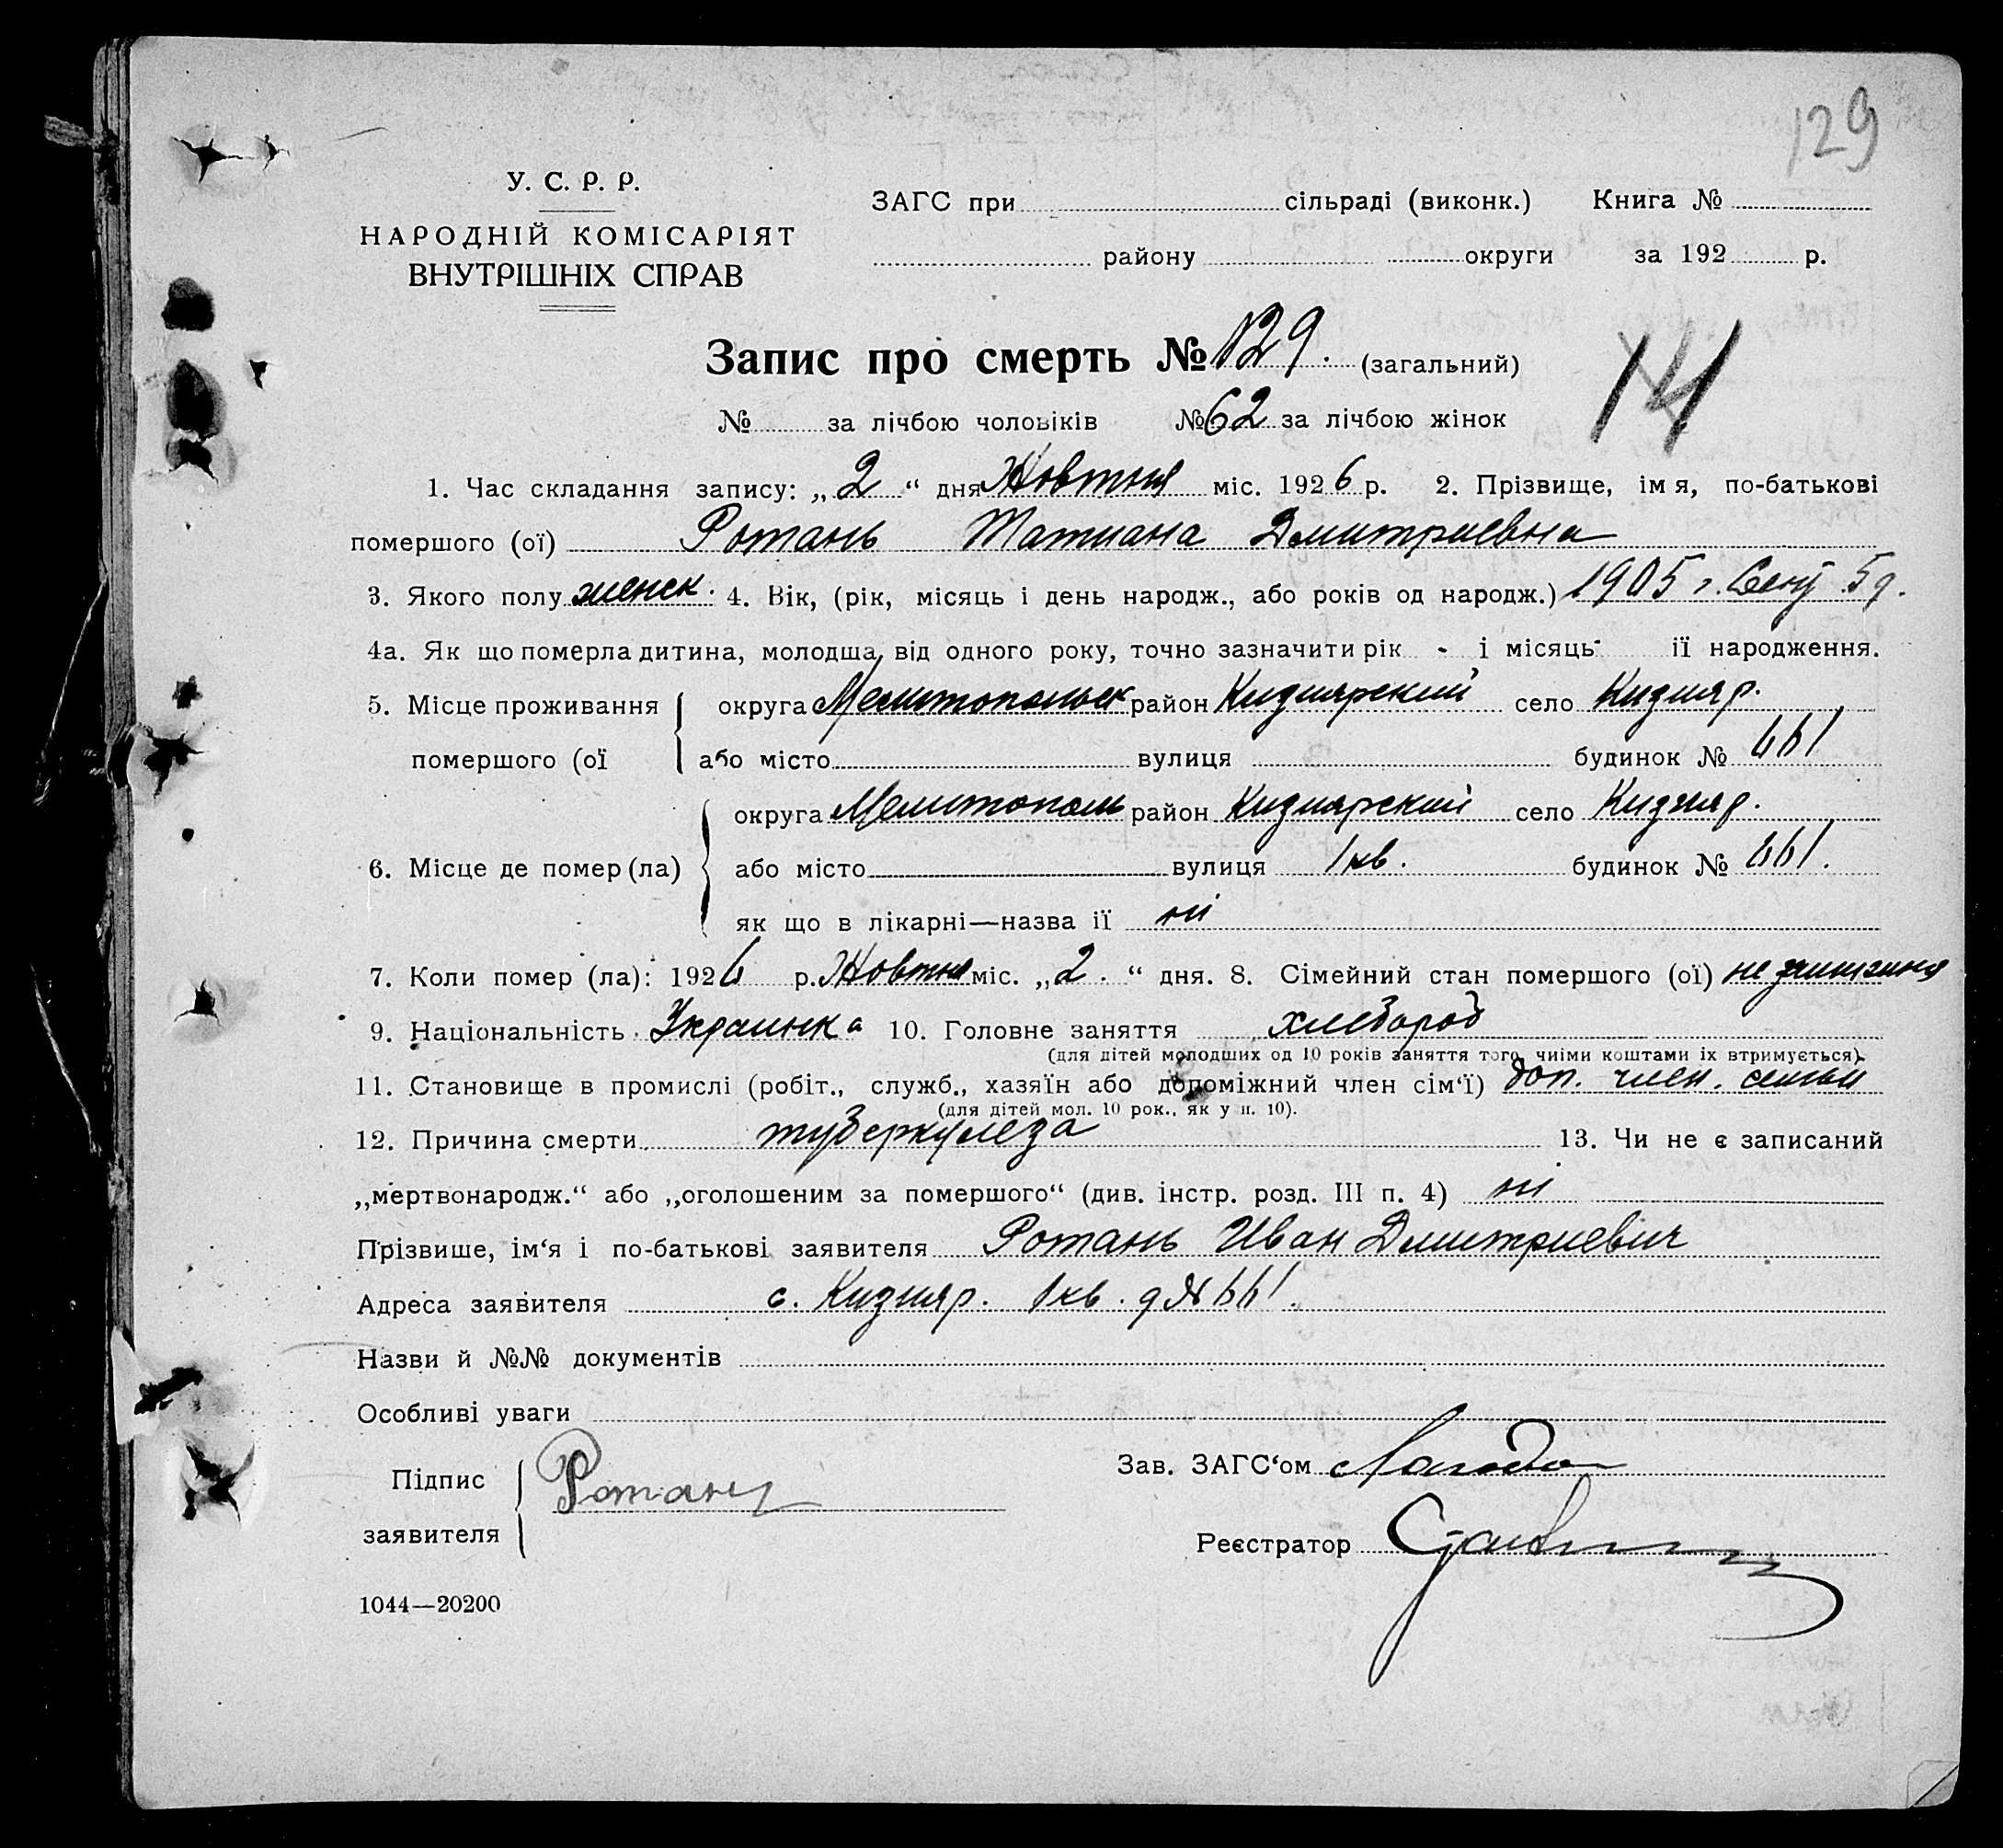 129
У. С. Р. Р.
НАРОДНІЙ КОМІСАРІЯТ
ВНУТРІШНІХ СПРАВ
ЗАГС при сільраді (виконк.) Книга №
району округи за 192 р.
Запис про смерть № 129. (загальний)
№ за лічбою чоловіків № 62 за лічбою жінок
141
1. Час складання запису: „ 2 “ дня Жовтня міс. 1926 р. 2. Прізвище, імя, по-батькові
помершого (ої) Ротань Татиана Дмитриевна
3. Якого полу женск. 4. Вік, (рік, місяць і день народж., або років од народж.) 1905 г. Сент. 5 д.
4а. Як що померла дитина, молодша від одного року, точно зазначити рік - і місяць - ії народження.
5. Місце проживання округа Мелитопольск район Кизиярский село Кизияр.
помершого (ої або місто вулиця будинок № 661
округа Мелитополь район Кизиярский село Кизияр.
6. Місце де помер (ла) або місто вулиця 1 кв. будинок № 661.
як що в лікарні—назва ії ні
7. Коли помер (ла): 1926 р. Жовтня міс. „ 2. “ дня. 8. Сімейний стан помершого (ої) не
9. Національність Украинка 10. Головне заняття хлебороб
(для дітей молодших од 10 років заняття того, чиїми коштами їх втримується).
11. Становище в промислі (робіт., служб., хазяїн або допоміжний член сім‘ї) доп. член. семьи
(для дітей мол. 10 рок., як у п. 10).
12. Причина смерти туберкулеза 13. Чи не є записаний
„мертвонародж.“ або „оголошеним за помершого“ (див. інстр. розд. III п. 4) ні
Прізвише, ім‘я і по-батькові заявителя Ротань Иван Дмитриевич
Адреса заявителя с. Кизияр. 1 кв. д № 661.
Назви й №№ документів
Особливі уваги
Підпис Ротань Зав. ЗАГС‘ом
заявителя Реєстратор
1044—20200